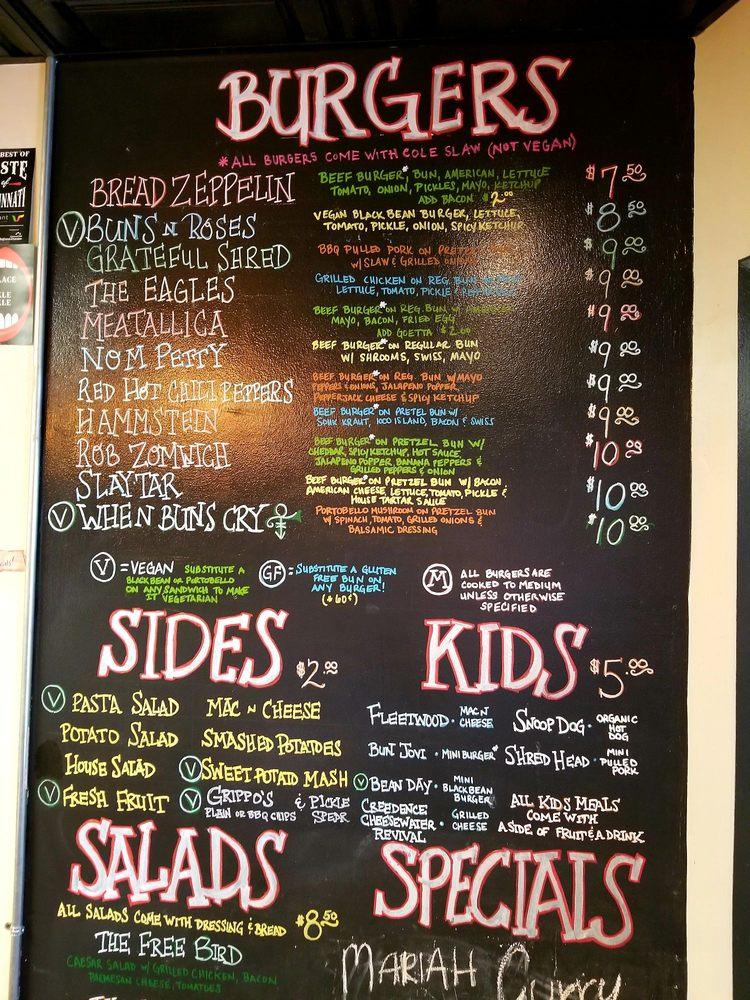 BEST OF
BURGERS
*ALL BURGERS COME WITH COLE SLAW (NOT VEGAN)
BREAD ZEPPELIN BEEF BURGER* BUN, AMERICAN, LETTUCE $7.50
TOMATO, ONION, PICKLES, MAYO, KETCHUP
ADD BACON $2.00
V BUNS N ROSES VEGAN BLACK BEAN BURGER, LETTUCE, $8.50
TOMATO, PICKLE, ONION, SPICY KETCHUP
GRATEFUL SHRED BBQ PULLED PORK ON PRETZEL $9.00
W/ SLAW & GRILLED ONIONS
THE EAGLES GRILLED CHICKEN ON REG. BUN $9.00
LETTUCE, TOMATO, PICKLE
MEATALLICA BEEF BURGER* ON REG. BUN W/ AMERICAN $9.00
MAYO, BACON, FRIED EGG
ADD GOETTA $2.00
NOM PETTY BEEF BURGER* ON REGULAR BUN $9.00
W/ SHROOMS, SWISS, MAYO
RED HOT CHILI PEPPERS BEEF BURGER* ON REG. BUN W/ MAYO $9.00
PEPPERS & ONIONS, JALAPENO POPPER,
PEPPERJACK CHEESE & SPICY KETCHUP
HAMMSTEIN BEEF BURGER* ON PRETEL BUN W/ $9.00
SOUR KRAUT, 1000 ISLAND, BACON & SWISS
ROB ZOMWICH BEEF BURGER* ON PRETZEL BUN W/ $10.00
CHEDDAR, SPICY KETCHUP, HOT SAUCE,
JALAPENO POPPER, BANANA PEPPERS &
GRILLED PEPPERS & ONION
SLAYTAR BEEF BURGER* ON PRETZEL BUN W/ BACON $10.00
AMERICAN CHEESE, LETTUCE, TOMATO, PICKLE &
HOUSE TARTAR SAUCE
V WHEN BUNS CRY PORTOBELLO MUSHROOM ON PRETZEL BUN $10.00
W/ SPINACH, TOMATO, GRILLED ONIONS &
BALSAMIC DRESSING
V = VEGAN SUBSTITUTE A
BLACK BEAN OR PORTOBELLO
ON ANY SANDWICH TO MAKE
IT VEGETARIAN
GF = SUBSTITUTE A GLUTEN
FREE BUN ON
ANY BURGER!
(+ 60¢)
M ALL BURGERS ARE
COOKED TO MEDIUM
UNLESS OTHERWISE
SPECIFIED
SIDES $2.00
V PASTA SALAD MAC N CHEESE
POTATO SALAD SMASHED POTATOES
HOUSE SALAD V SWEET POTATO MASH
V FRESH FRUIT V GRIPPO'S & PICKLE
PLAIN OR BBQ CHIPS SPEAR
KIDS $5.00
FLEETWOOD • MAC N
CHEESE
SNOOP DOG • ORGANIC
HOT
DOG
BUN JOVI • MINI BURGER*
SHRED HEAD • MINI
PULLED
PORK
V BEAN DAY • MINI
BLACK BEAN
BURGER
CREEDENCE
CHEESEWATER • GRILLED
REVIVAL CHEESE
ALL KIDS MEALS
COME WITH
A SIDE OF FRUIT & A DRINK
SALADS
ALL SALADS COME WITH DRESSING & BREAD $8.50
THE FREE BIRD
CAESAR SALAD W/ GRILLED CHICKEN, BACON
PARMESAN CHEESE, TOMATOES
SPECIALS
MARIAH CURRY